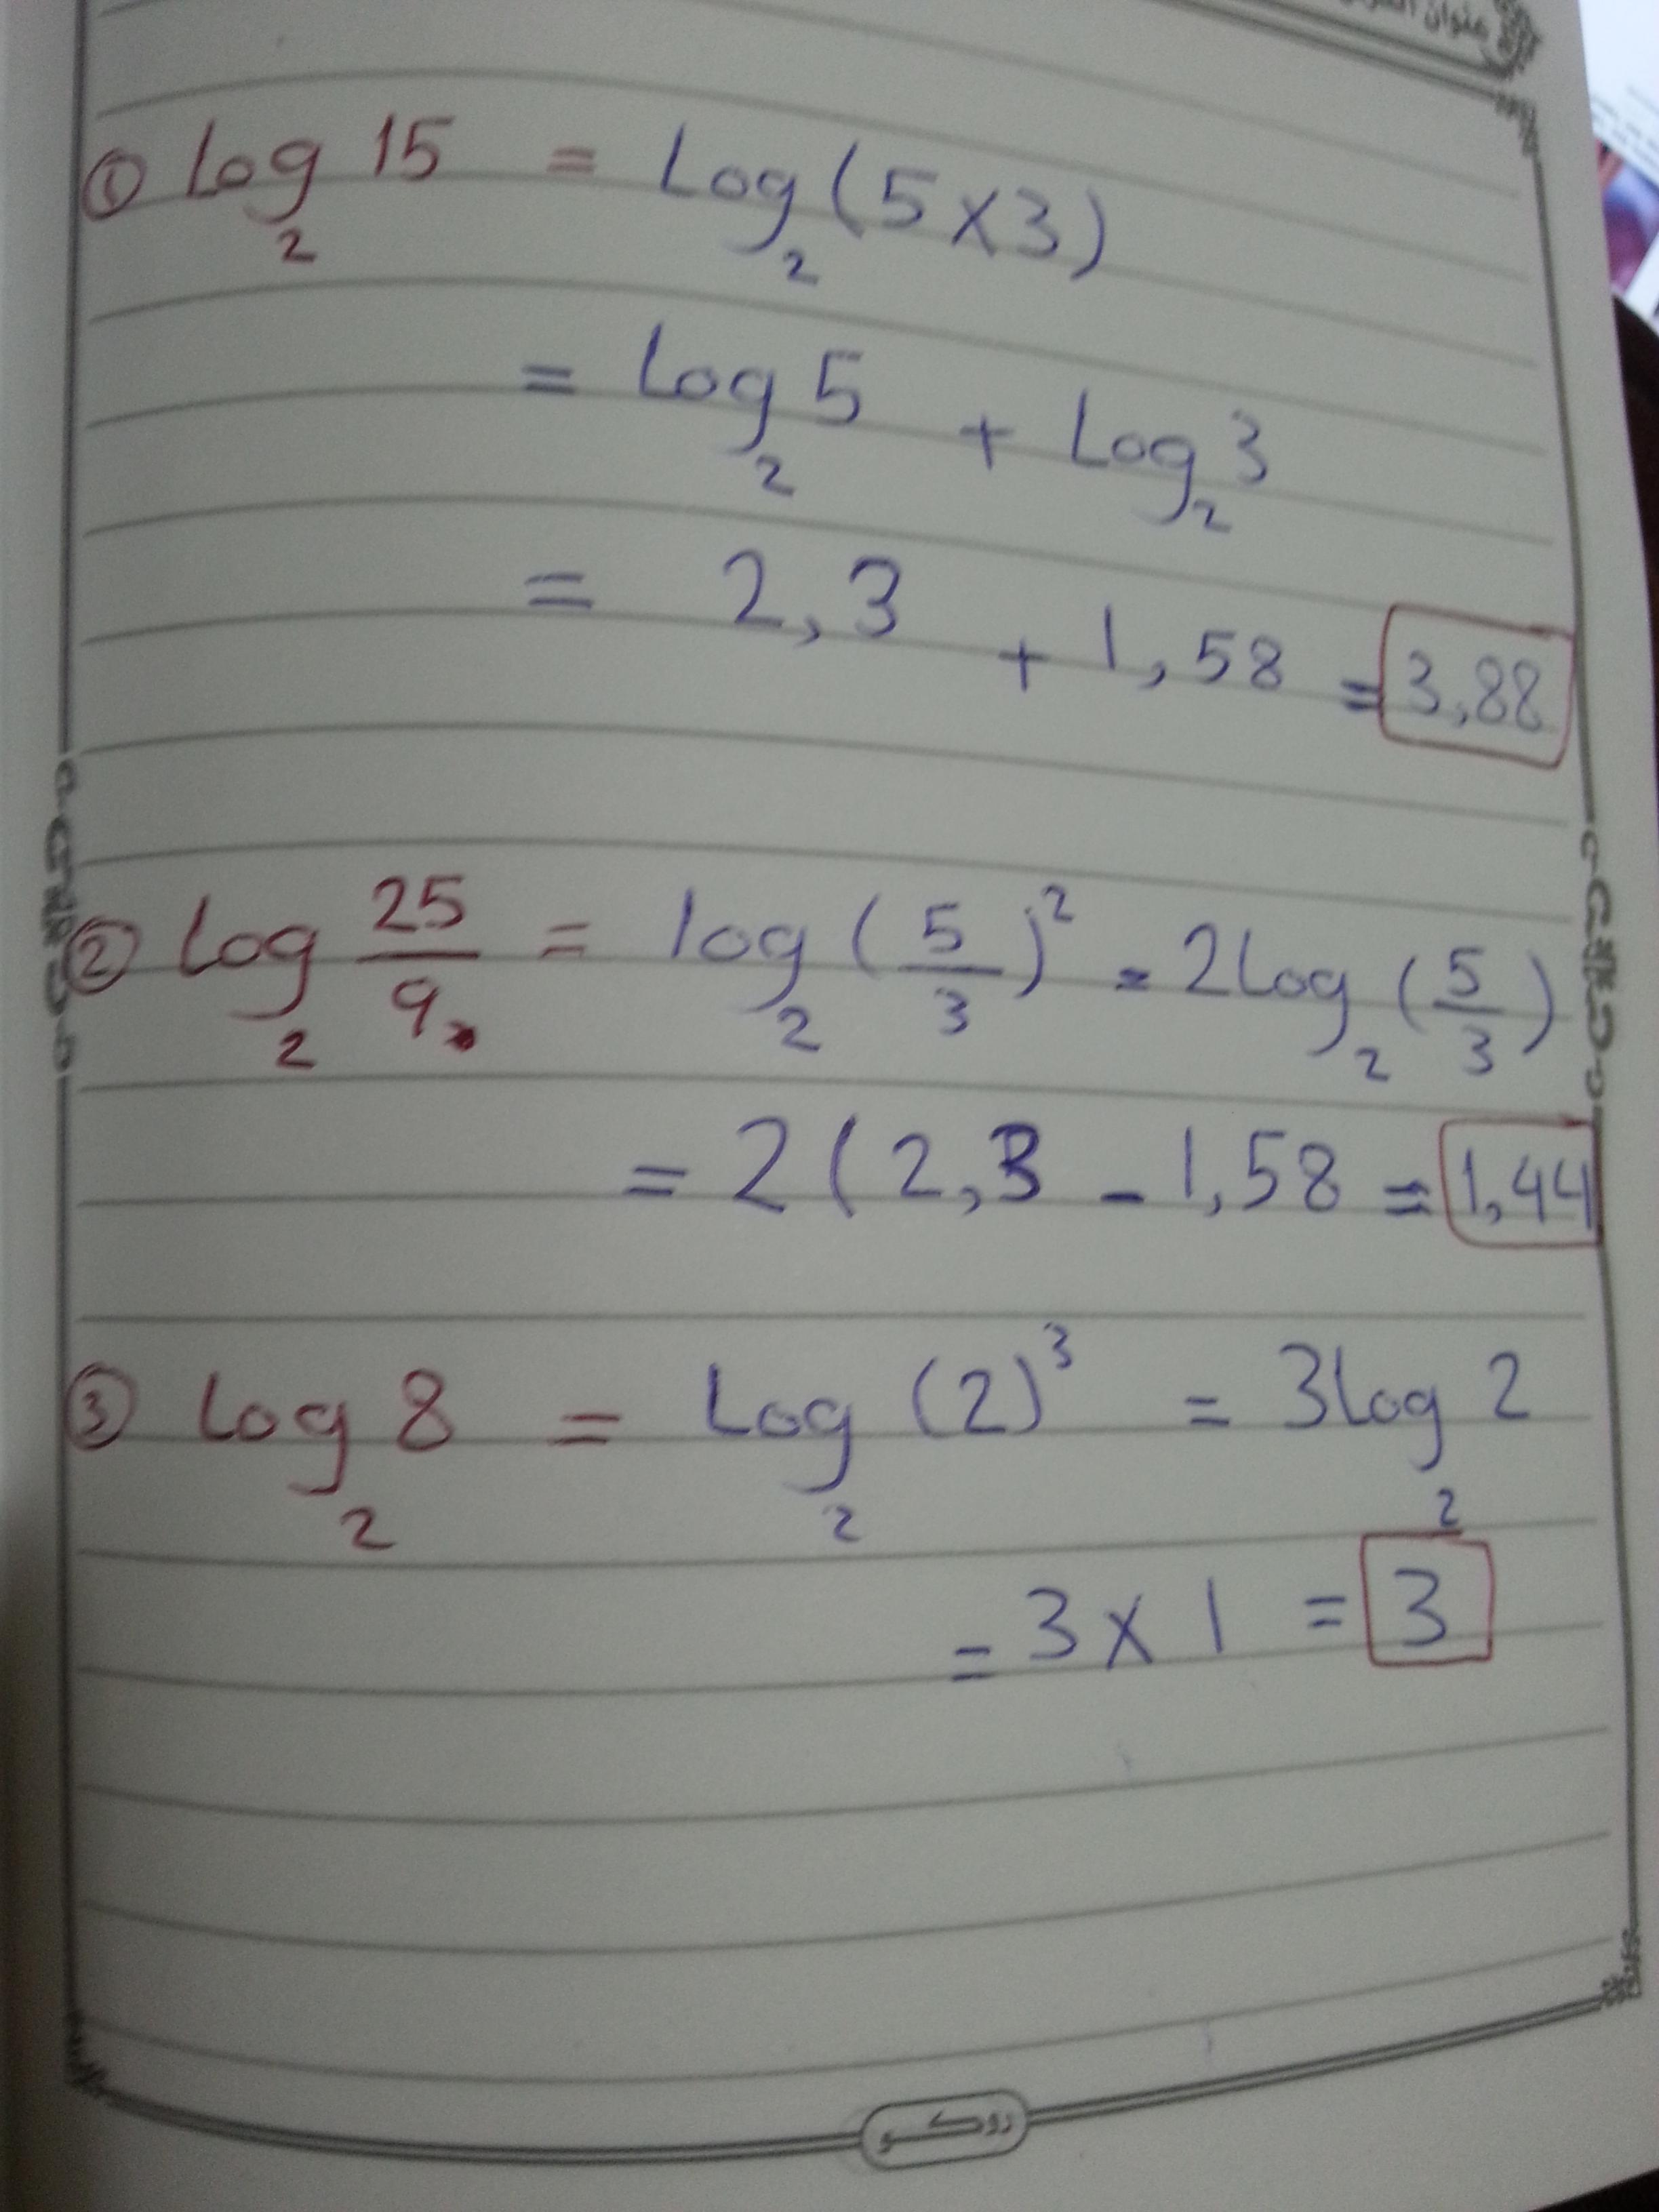 عنوان
① log₂ 15 = Log₂ (5 × 3)
= log₂ 5 + Log₂ 3
= 2,3 + 1,58 = 3,88
② log₂ 25/9 = log₂ (5/3)² = 2 log₂ (5/3)
= 2 ( 2,3 - 1,58 = 1,44
③ log₂ 8 = Log₂ (2)³ = 3 log₂ 2
= 3 × 1 = 3
روكو